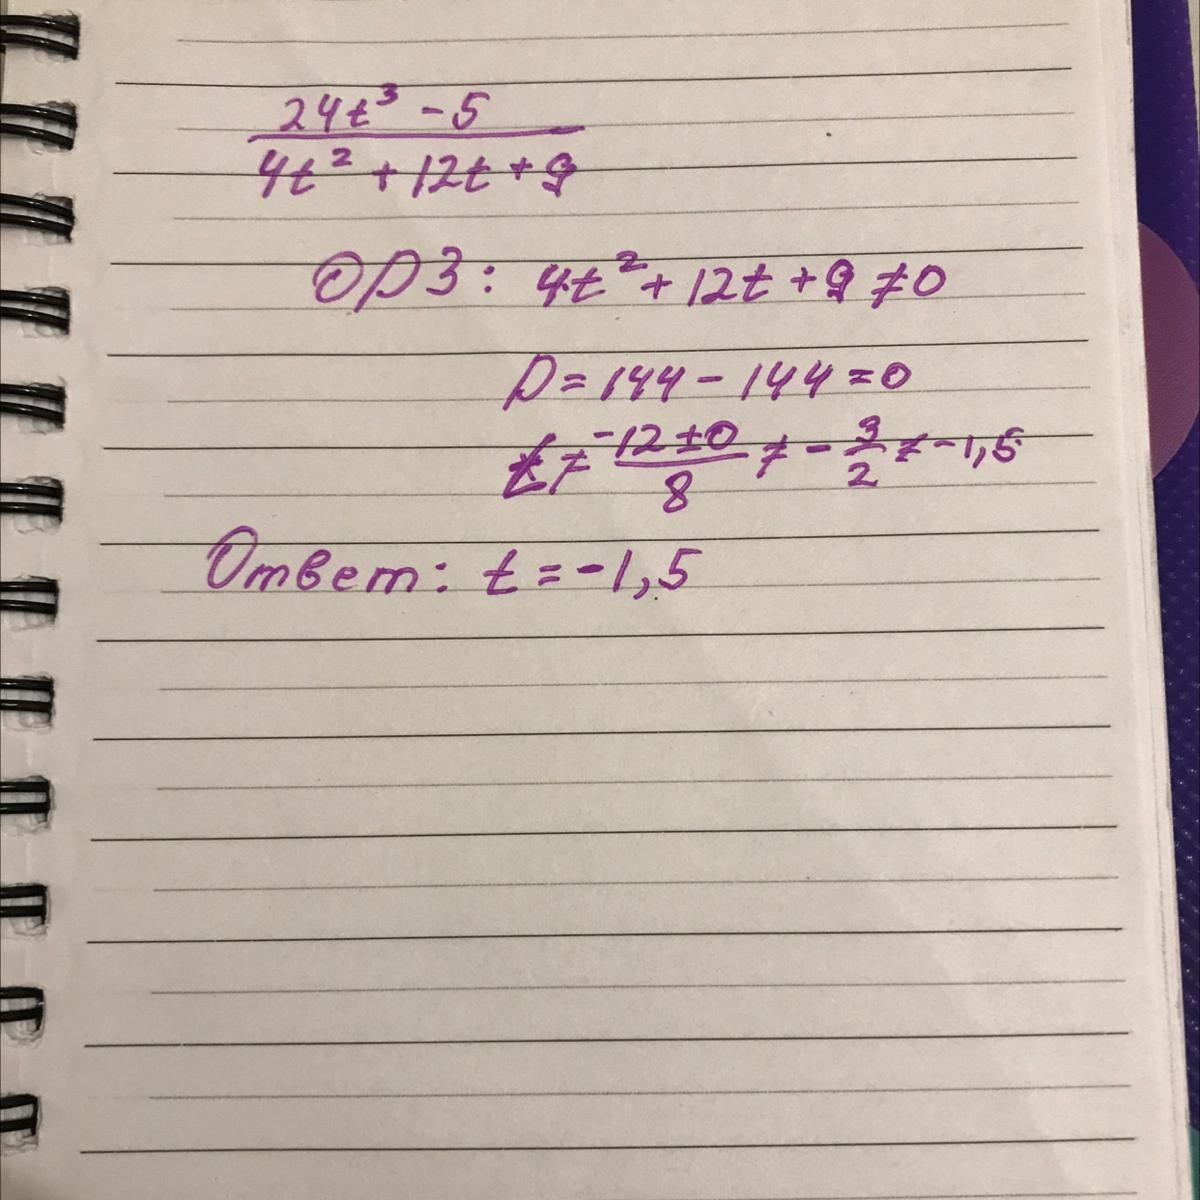 24t³ - 5
4t² + 12t + 9
ОДЗ: 4t² + 12t + 9 ≠ 0
D = 144 - 144 = 0
t ≠ (-12 ± 0)/8 ≠ -3/2 ≠ -1,5
Ответ: t = -1,5